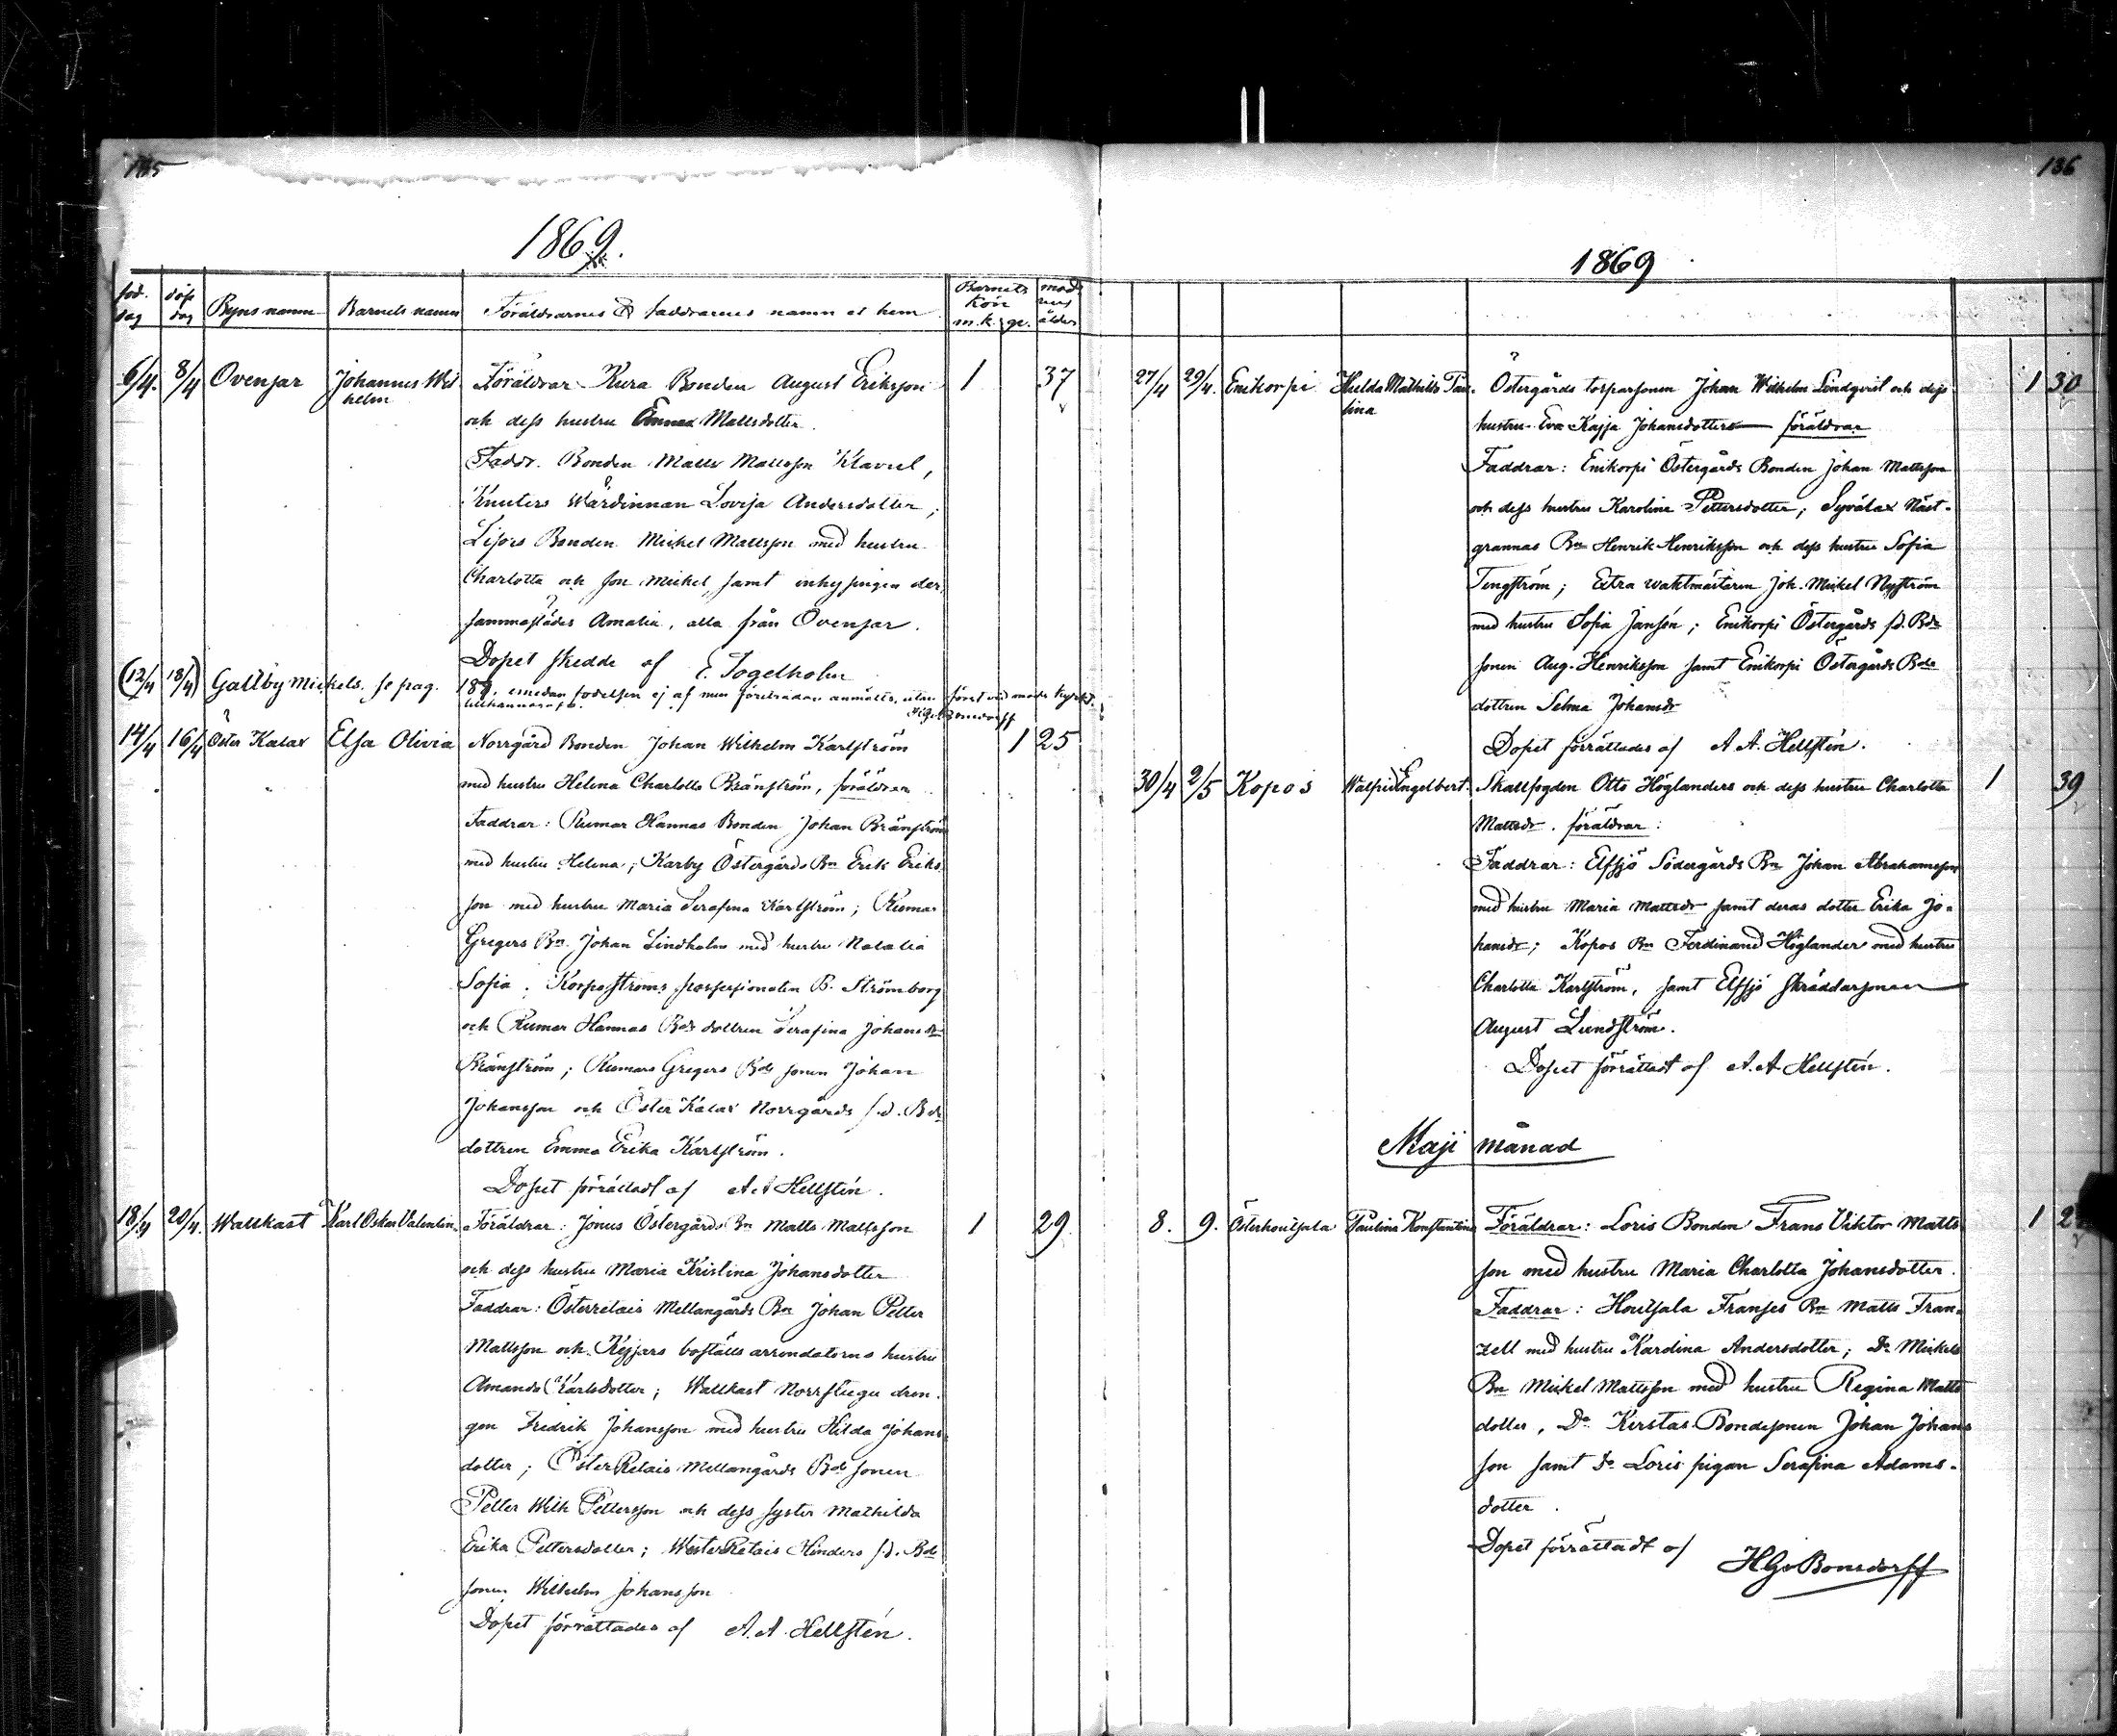 135
1869.
föd. dag döp dag Byns namn Barnets namn Föräldrarnes & faddrarnes namn et hem Barnets kön m.k. qv. modrens ålder
6/4. 8/4 Ovensar Johannes Wil Föräldrar Kura Bonden August Eriksson 1 37
helm och dess hustru Anna Mattsdotter.
Faddr. Bonden Matts Mattsson Klavus,
Knuters Wärdinnan Lovisa Andersdotter,
Lisois Bonden Mickel Mattsson med hustru
Charlotta och son Mickel, samt inhysingen der,
sammastädes Amalia, alla från Ovensar.
Dopet skedde af E. Fogelholm
(12/4 18/4) Galtby Mickels. se pag. 187. emedan födelsen ej af min företrädare anmälts, utan först vid
14/4 16/4 Öster Kalax Elsa Olivia Norrgård Bonden Johan Wilhelm Karlström 1 25
med hustru Helena Charlotta Bränström, föräldrar
Faddrar: Rumar Hannas Bonden Johan Bränström
med hustru Helena; Karby Östergårds Bn Erik Eriks
son med hustru Maria Serafina Karlström; Rumar
Gregers Bn Johan Lindholm med hustru Natalia
Sofia; Korpoströms possessionaten B. Strömborg
och Rumar Hannas Bde dottren Serafina Johansdr
Bränström; Rumars Gregers Bde sonen Johan
Johansson och Öster Kalax Norrgårds f.d. Bde
dottren Emma Erika Karlström.
Dopet förrättadt af A A Hellstén.
18/4 20/4. Wattkast Karl Oskar Valentin. Föräldrar: Jonus Östergårds Bn Matts Mattsson 1 29.
och dess hustru Maria Kristina Johansdotter
Faddrar: Österretais Mellangårds Bn Johan Petter
Mattsson och Kejsars boställs arrendatorns hustru
Amanda Karlsdotter; Wattkast Norrstugu drän.
gen Fredrik Johansson med hustru Hilda Johans
dotter; Öster Retais Mellangårds Bde sonen
Petter Wilh Pettersson och dess syster Mathilda
Erika Pettersdotter; Wester Retais Hinders f.d. Bde
sonen Wilhelm Johansson
Dopet förrättades af A. A. Hellstén.
136
1869
27/4 29/4. Enikorpi Hulda Mathilda Pau- Östergårds torparsonen Johan Wilhelm Lindqvist och dess 1 30
lina hustru Eva Kajsa Johansdotter föräldrar
Faddrar: Enikorpi Östergårds Bonden Johan Mattsson
och dess hustru Karolina Pettersdotter; Syvälax Näst-
grannas Bn Henrik Henriksson och dess hustru Sofia
Tengström; Extra waktmästaren Joh. Mickel Nyström
med hustru Sofia Jansén; Enikorpi Östergårds f.d. Bde
sonen Aug. Henriksson samt Enikorpi Östergårds Bde
dottren Selma Johansdr
Dopet förrättades af A A. Hellstén.
30/4 2/5 Kopois Walfrid Engelbert. Skallfogden Otto Höglanders och dess hustru Charlotta 1 39
Mattsdr. föräldrar:
Faddrar: Elfsjö Södergårds Bn Johan Abrahamsson
med hustru Maria Mattsdr samt deras dotter Erika Jo-
hansdr; Kopos Bn Ferdinand Höglander med hustru
Charlotta Karlström, samt Elfsjö skräddarsonen
August Lundström.
Dopet förrättadt af A. A Hellstén.
Maji månad
8. 9. Österhoutsala Paulina Konstantina Föräldrar: Loris Bonden Frans Viktor Matts 1 2
son med hustru Maria Charlotta Johansdotter.
Faddrar: Houtsala Franses Bn Matts Fran-
zell med hustru Karolina Andersdotter; Do Mickels
Bn Mickel Mattsson med hustru Regina Matts
dotter, Do Kerstas Bondesonen Johan Johans
son samt Do Loris pigan Serafina Adams-
dotter.
Dopet förrättadt af HGvBonsdorff